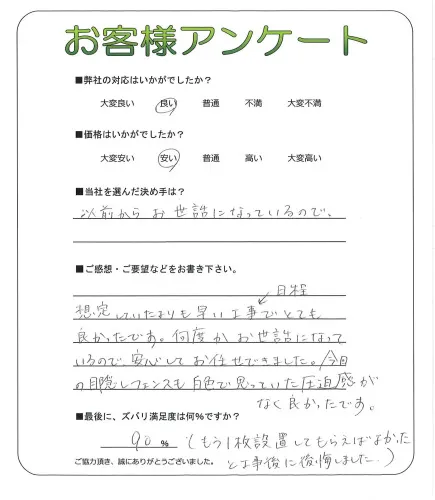 お客様アンケート
■弊社の対応はいかがでしたか?
大変良い 良い 普通 不満 大変不満
■価格はいかがでしたか?
大変安い 安い 普通 高い 大変高い
■当社を選んだ決め手は?
以前からお世話になっているので、
■ご感想・ご要望などをお書き下さい。
日程
想定していたよりも早い工事でとても
良かったです。何度かお世話になって
いるので、安心してお任せできました。今回
の目隠しフェンスも白色で思っていた圧迫感が
なく良かったです。
■最後に、ズバリ満足度は何%ですか?
90 % (もう1枚設置してもらえばよかった
ご協力頂き、誠にありがとうございました。 と工事後に後悔しました。)